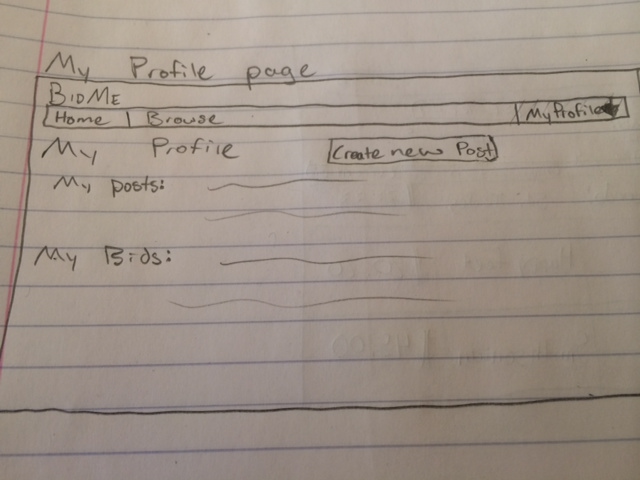 My Profile page
BIDME
Home Browse My Profile
My Profile Create new Post
My posts:
My Bids: